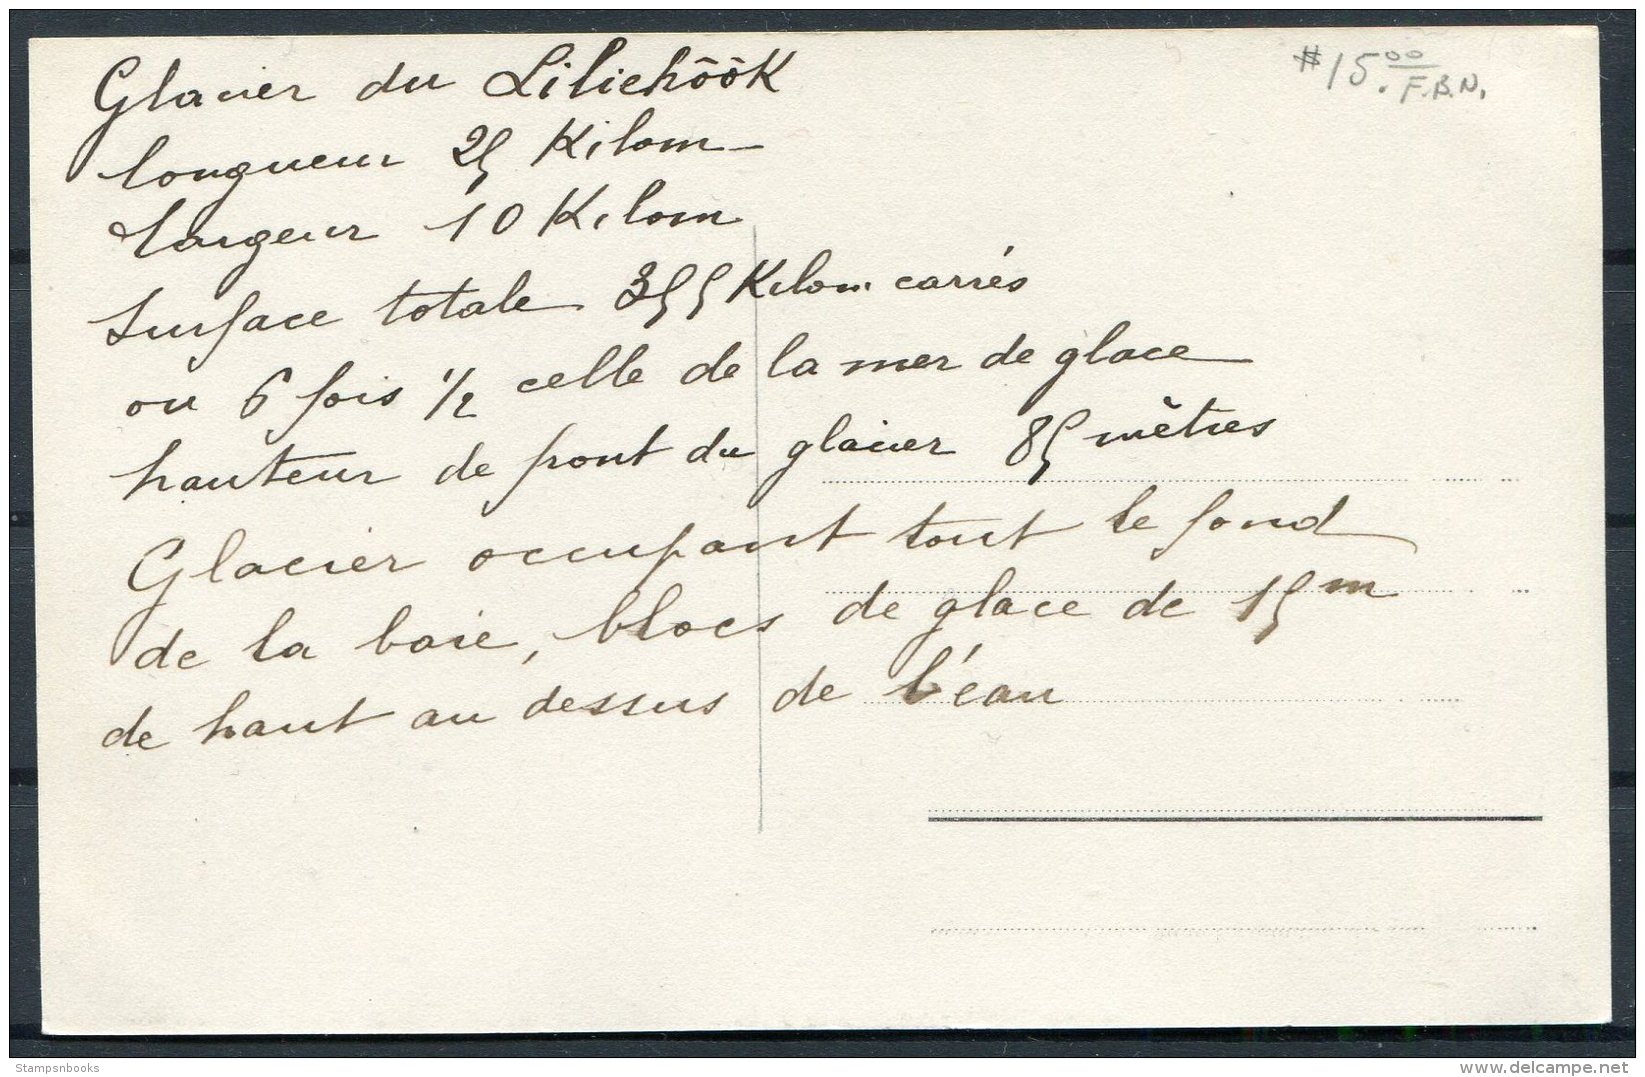 Glacier du Lilichôôk
longueur 25 Kilom
largeur 10 Kilom
Surface totale 355 Kilom carrés
ou 6 fois 1/2 celle de la mer de glace
hauteur de front du glacier 85 mètres
Glacier occupant tout le fond
de la baie, blocs de glace de 15 m
de haut au dessus de l'éau
#15.00
F.B.N.
Stampsnbooks
www.delcampe.net